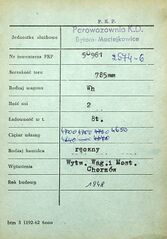 P. K. P.
Jednostka służbowa
Parowozownia K.D.
Bytom-Maciejkowice
Nr inwentarza PKP
5U961
2544-6
Szerokość toru
785mm
Rodzaj wagonu
Wh
Ilość osi
2
Ładowność w t.
8t.
Ciężar własny
4700 4650
Rodzaj hamulca
ręczny
Wytwórnia
Wytw. Wag. i Most.
Chorzów
Rok budowy
1948